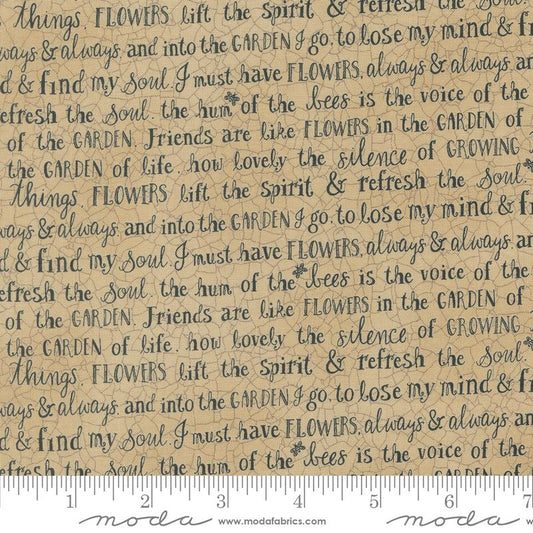 things. FLOWERS lift the Spirit & refresh the Soul.
always & always. and into the GARDEN I go, to lose my mind &
& find my Soul. I must have FLOWERS, always & always
refresh the Soul. the hum of the bees is the voice of the
of the GARDEN. Friends are like FLOWERS in the GARDEN of
the GARDEN of life. how lovely the silence of GROWING
things. FLOWERS lift the Spirit & refresh the Soul.
ways & always. and into the GARDEN I go, to lose my mind & f
d & find my Soul. I must have FLOWERS, always & always. an
efresh the Soul. the hum of the bees is the voice of the
of the GARDEN. Friends are like FLOWERS in the GARDEN of
the GARDEN of life. how lovely the silence of GROWING
things. FLOWERS lift the Spirit & refresh the Soul.
ways & always. and into the GARDEN I go, to lose my mind & fi
d & find my Soul. I must have FLOWERS, always & always. an
refresh the Soul. the hum of the bees is the voice of the
of the GARDEN. Friends are like FLOWERS in the GARDEN of
1 2 3 4 5 6 7
moda www.modafabrics.com moda